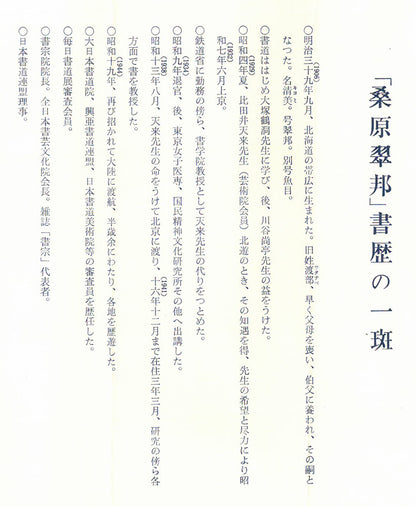 「桑原翠邦」書歴の一斑
○明治三十九年九月、北海道の帯広に生まれた。旧姓渡部、早く父母を喪い、伯父に養われ、その嗣と
(1906)
ワタナベ
なつた。名清美。号翠邦。別号魚目。
キヨミ
○書道ははじめ大塚鶴洞先生に学び、後、川谷尚亭先生の益をうけた。
○昭和四年夏、比田井天来先生（芸術院会員）北遊のとき、その知遇を得、先生の希望と尽力により昭
(1929)
和七年六月上京。
(1932)
○鉄道省に勤務の傍ら、書学院教授として天来先生の代りをつとめた。
○昭和九年退官、後、東京女子医専、国民精神文化研究所その他へ出講した。
(1934)
○昭和十三年八月、天来先生の命をうけて北京に渡り、十六年十二月まで在住三年三月、研究の傍ら各
(1938)
(1941)
方面で書を教授した。
○昭和十九年、再び招かれて大陸に渡航、半歳余にわたり、各地を歴遊した。
(1944)
○大日本書道院、興亜書道連盟、日本書道美術院等の審査員を歴任した。
○毎日書道展審査会員。
○書宗院院長。全日本書芸文化院会長。雑誌「書宗」代表者。
○日本書道連盟理事。